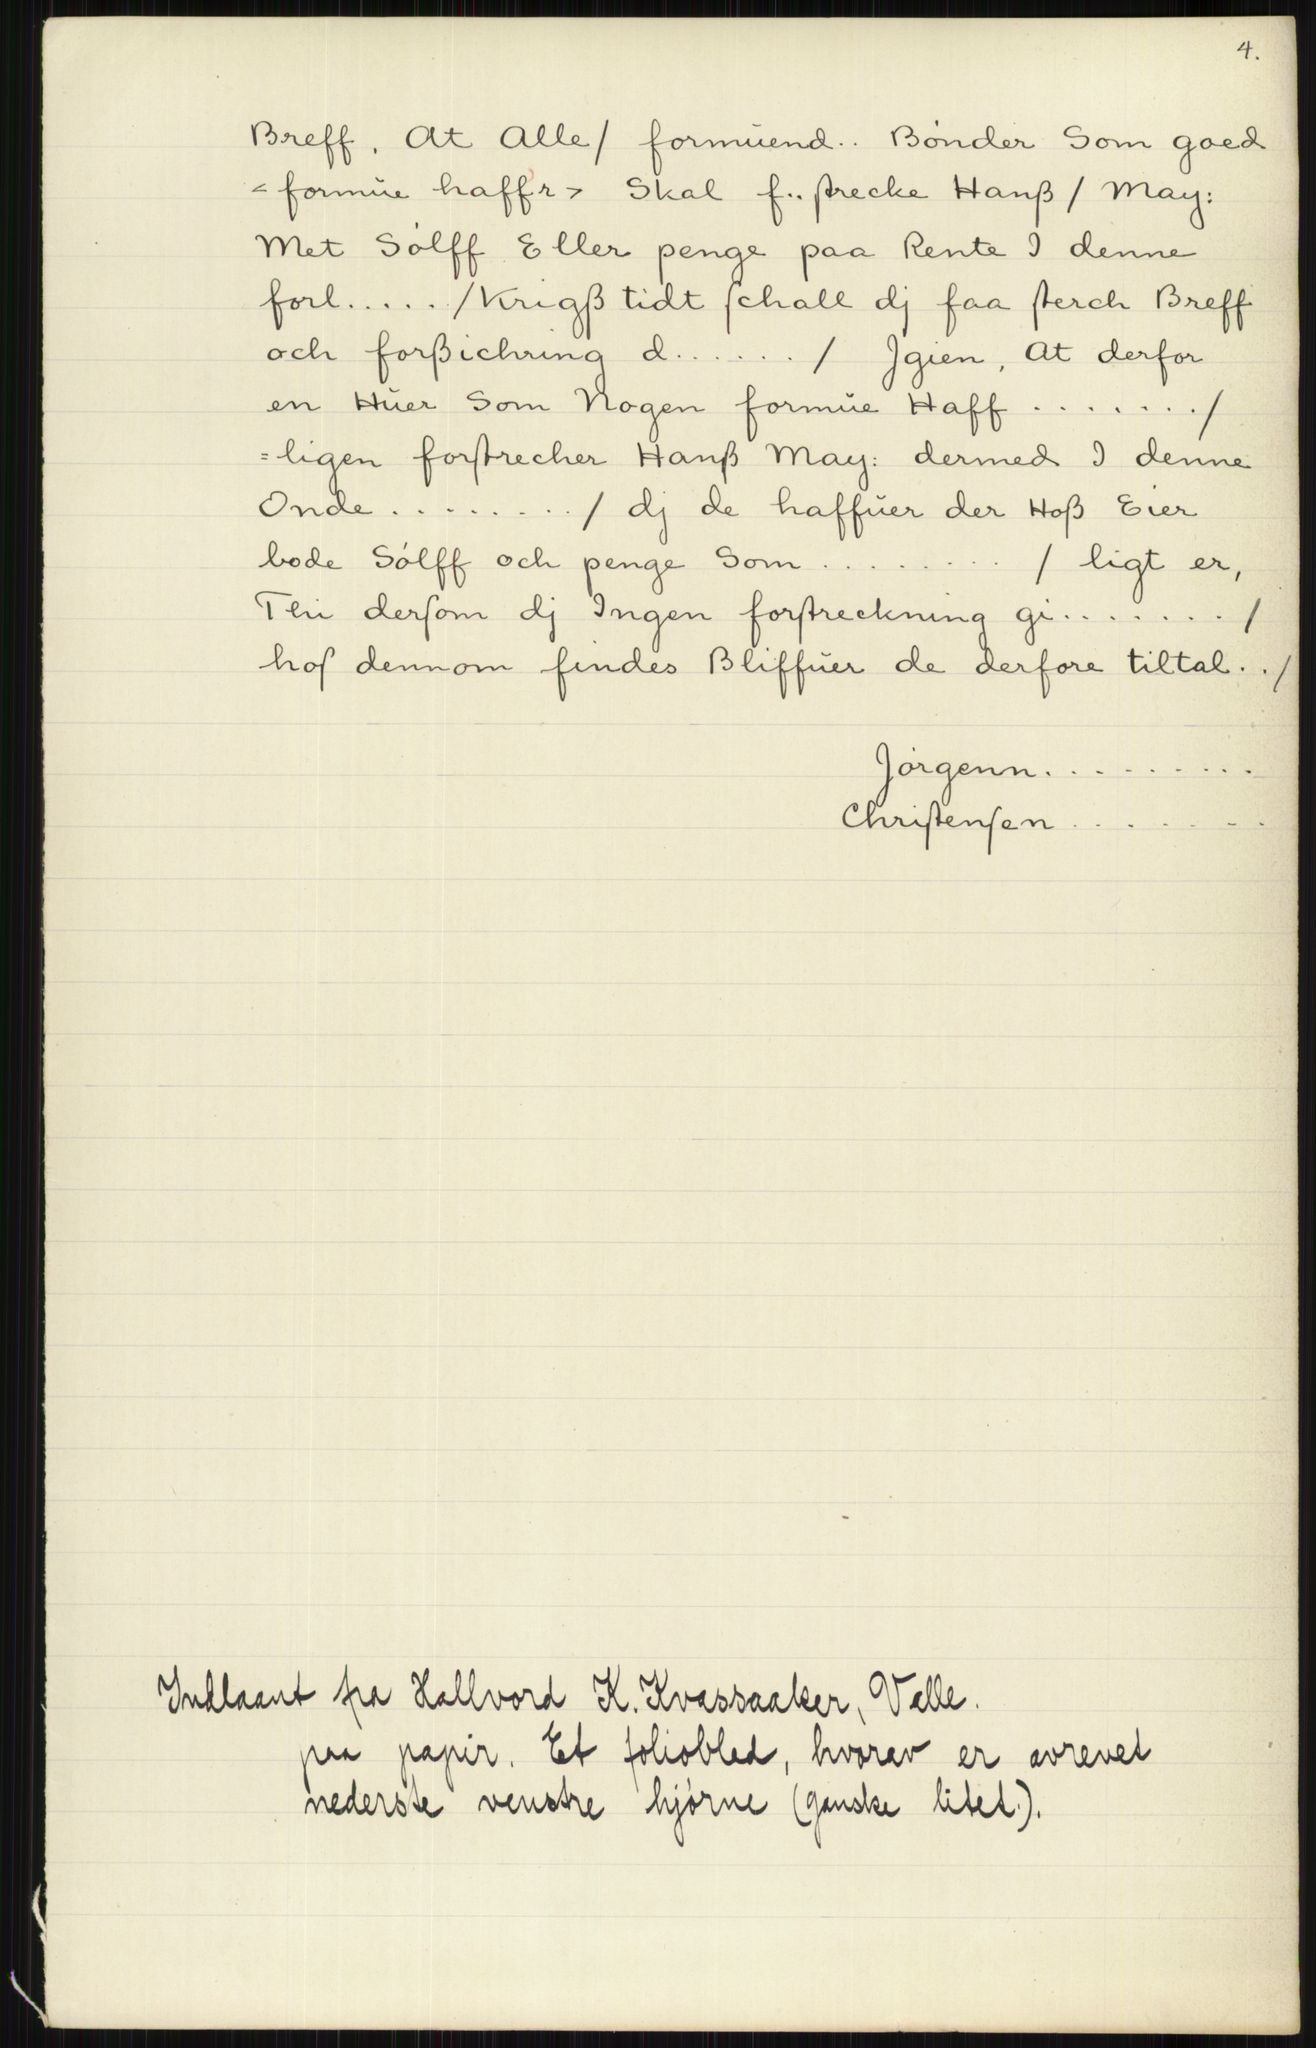 4.
Breff, At Alle/ formúend.. Bónder Som goed
< formúe haff'r > Skal f.. strecke Hanß / May:
Met Sólff Eller penge paa Rente I denne
forl...../Krigß tidt schall dj faa sterch Breff
och forßichring d....../ Jgien, At derfor
en Húer Som Nogen formúe Haff......./
=ligen forstrecher Hanß May: dermed I denne
Onde......../ dj de haffúer der Hoß Eier
bode Sólff och penge Som......../ ligt er,
Thi dersom dj Ingen forstreckning gi......./
hos dennom findes Bliffúer de derfore tiltal../
Jórgenn.........
Christensen.......
Indlaant fra Hallvord K. Kvassaaker, Valle.
paa papir. Et folioblad, hvorav er avrevet
nederste venstre hjørne (ganske litet.).